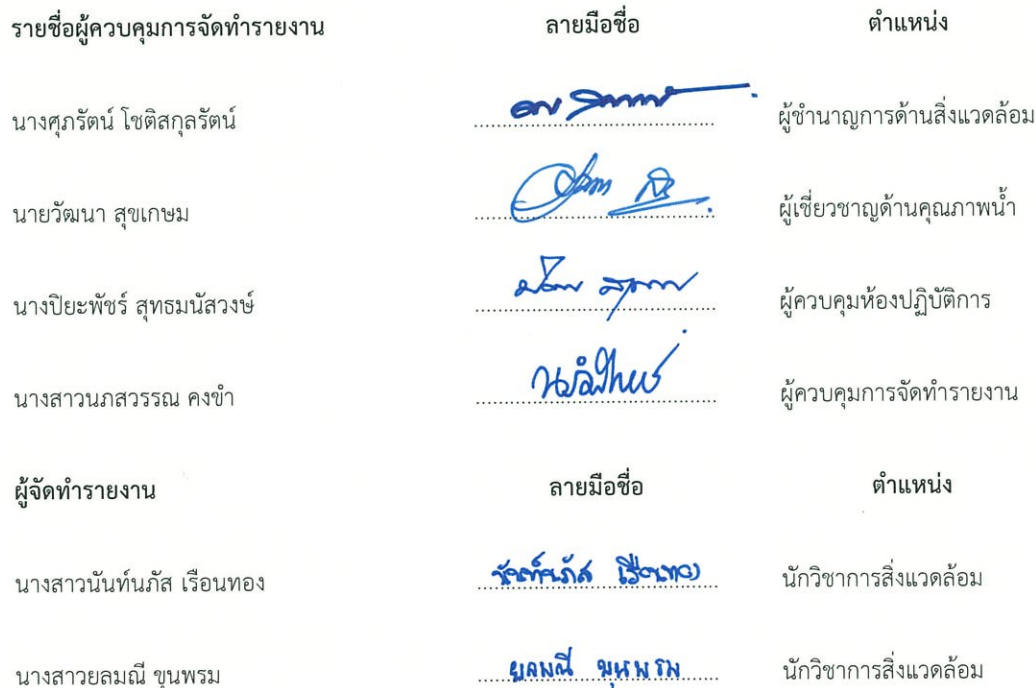 รายชื่อผู้ควบคุมการจัดทำรายงาน ลายมือชื่อ ตำแหน่ง
นางศุภรัตน์ โชติสกุลรัตน์ ผู้ชำนาญการด้านสิ่งแวดล้อม
นายวัฒนา สุขเกษม ผู้เชี่ยวชาญด้านคุณภาพน้ำ
นางปิยะพัชร์ สุทธมนัสวงษ์ ผู้ควบคุมห้องปฏิบัติการ
นางสาวนภสวรรณ คงขำ ผู้ควบคุมการจัดทำรายงาน
ผู้จัดทำรายงาน ลายมือชื่อ ตำแหน่ง
นางสาวนันท์นภัส เรือนทอง นันท์นภัส เรือนทอง นักวิชาการสิ่งแวดล้อม
นางสาวยลมณี ขุนพรม ยลมณี ขุนพรม นักวิชาการสิ่งแวดล้อม